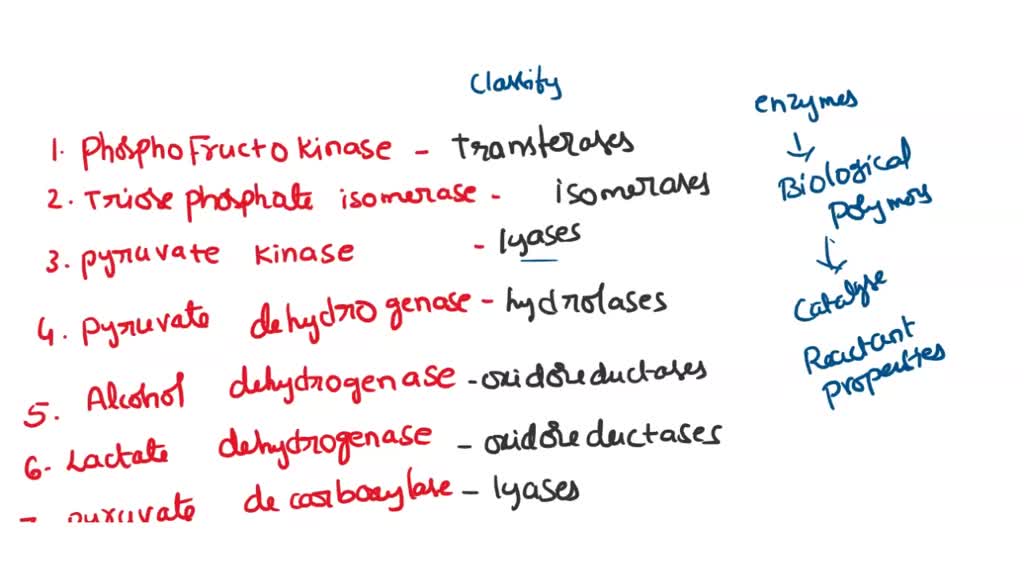 Classify
1. Phosphofructokinase - Transferases
2. Triose phosphate isomerase - isomerases
3. pyruvate kinase - lyases
4. pyruvate dehydrogenase - hydrolases
5. Alcohol dehydrogenase - oxidoreductases
6. Lactate dehydrogenase - oxidoreductases
pyruvate decarboxylase - lyases
enzymes
↓
Biological
polymers
↓
Catalyse
Reactant
properties